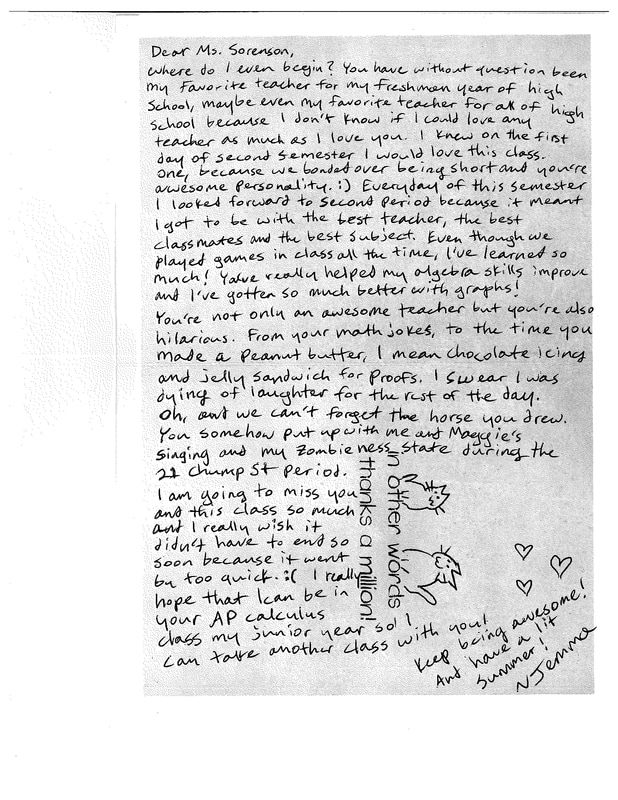 Dear Ms. Sorenson,
where do I even begin? You have without question been
my favorite teacher for my freshmen year of high
school, maybe even my favorite teacher for all of high
school because I don't know if I could love any
teacher as much as I love you. I knew on the first
day of second semester I would love this class.
One, because we bonded over being short and you're
awesome personality. :) Everyday of this semester
I looked forward to second period because it meant
I got to be with the best teacher, the best
classmates and the best subject. Even though we
played games in class all the time, I've learned so
much! You've really helped my algebra skills improve
and I've gotten so much better with graphs!
You're not only an awesome teacher but you're also
hilarious. From your math jokes, to the time you
made a peanut butter, I mean chocolate icing
and jelly sandwich for proofs. I swear I was
dying of laughter for the rest of the day.
Oh, and we can't forget the horse you drew.
You somehow put up with me and Maggie's
singing and my zombieness state during the
21 Chump St period.
I am going to miss you
and this class so much
and I really wish it
didn't have to end so
soon because it went
by too quick. :( I really
hope that I can be in
your AP calculus
class my junior year so I
can take another class with you!
in other words
thanks a million!
Keep being awesome!
And have a lit
summer!
~Jemma